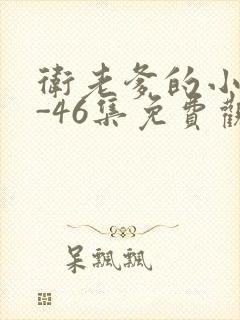 衛老爹的小
-46集免費觀
呆飄飄